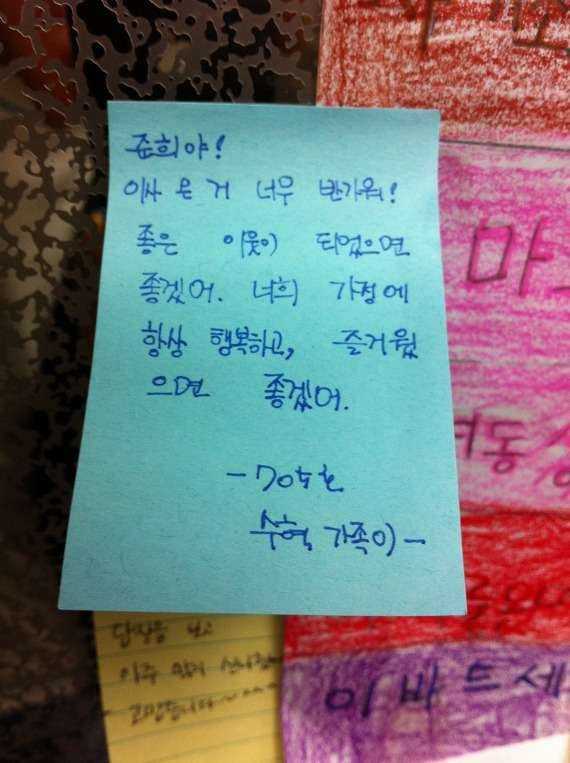 준희야!
이사 온 거 너무 반가워!
좋은 이웃이 되었으면
좋겠어. 너희 가정에
항상 행복하고, 즐거웠
으면 좋겠어.
-705호
수혁 가족이-
마
여동생
이바트세
답장을 보고
아주
고맙습니다~